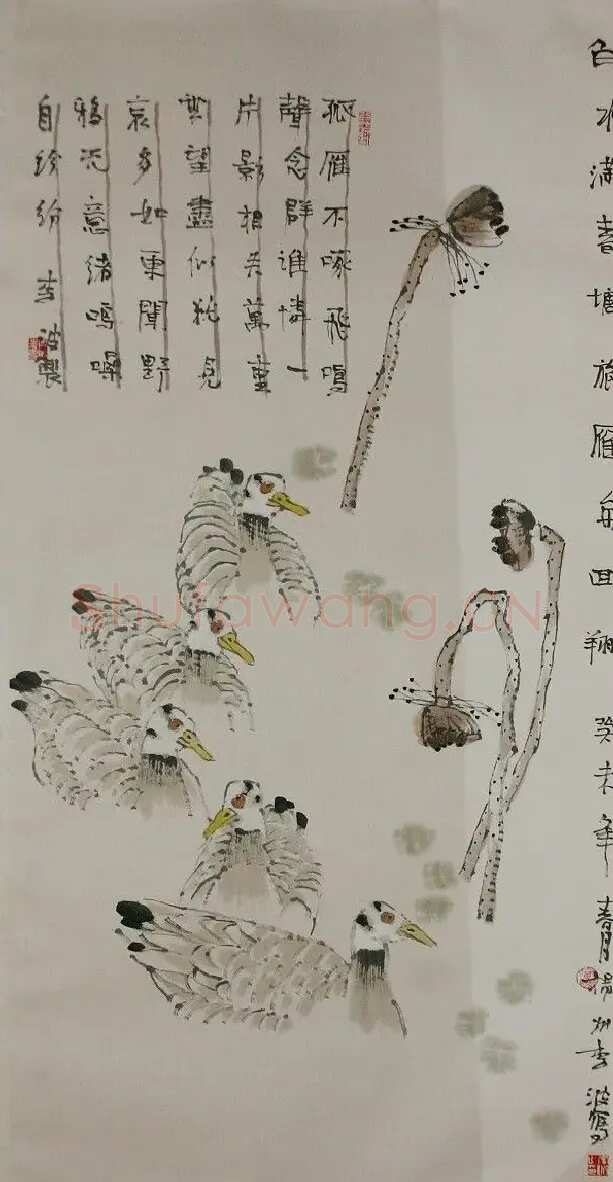 白水滿春塘旅雁每回翔 癸未年春月揚州李波寫
孤雁不啄飛鳴
聲念群誰憐一
片影相失萬重
雲望盡似猶見
哀多如更聞野
鴉无意緒鳴噪
自紛紛 李波製
Shufawang.CN